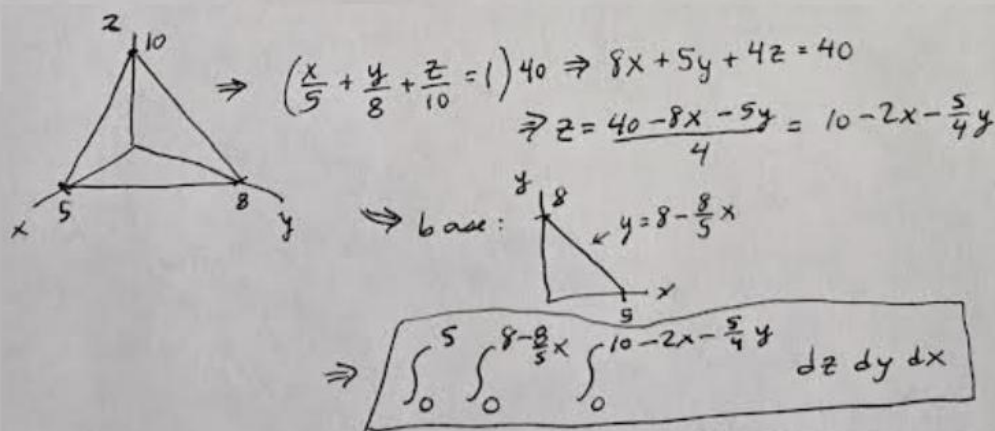 z
10
⇒ (x/5 + y/8 + z/10 = 1) 40 ⇒ 8x + 5y + 4z = 40
⇒ z = (40 - 8x - 5y)/4 = 10 - 2x - 5/4 y
x 5 8 y
⇒ base: y 8 ← y = 8 - 8/5 x
5 x
⇒ ∫₀^5 ∫₀^(8 - 8/5 x) ∫₀^(10 - 2x - 5/4 y) dz dy dx